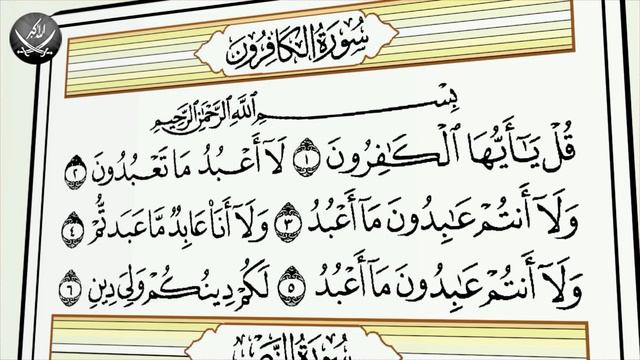 سُورَةُ الْكَافِرُونَ
بِسْمِ اللَّهِ الرَّحْمَٰنِ الرَّحِيمِ
قُلْ يَٰٓأَيُّهَا ٱلْكَٰفِرُونَ ١ لَآ أَعْبُدُ مَا تَعْبُدُونَ ٢
وَلَآ أَنتُمْ عَٰبِدُونَ مَآ أَعْبُدُ ٣ وَلَآ أَنَا۠ عَابِدٌ مَّا عَبَدتُّمْ ٤
وَلَآ أَنتُمْ عَٰبِدُونَ مَآ أَعْبُدُ ٥ لَكُمْ دِينُكُمْ وَلِيَ دِينِ ٦
سُورَةُ النَّصْرِ